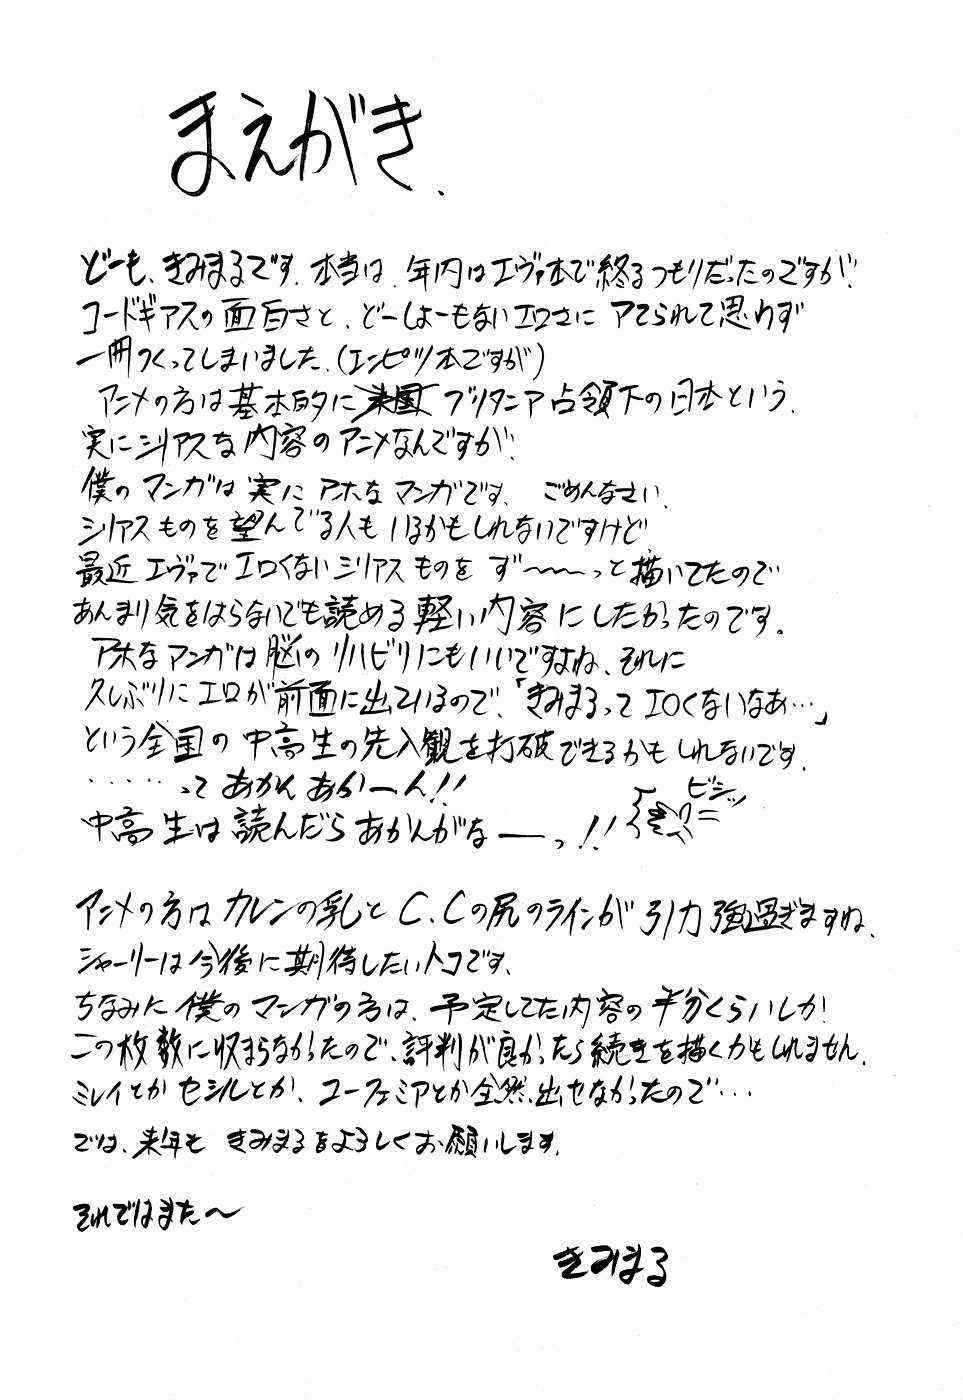 まえがき、
どーも、きみまるです。本当は、年内はエヴァ本で終るつもりだったのですが、
コードギアスの面白さと、どーしよーもないエロさに アてられて思わず
一冊つくってしまいました。(エンピツ本ですが)
アニメの方は基本的に米国ブリタニア占領下の日本という、
実にシリアスな内容のアニメなんですが、
僕のマンガは実に アホなマンガです、ごめんなさい、
シリアスものを望んでる人も いるかもしれないですけど
最近エヴァでエロくないシリアスものを ず〜〜〜っと描いてたので
あんまり気をはらないでも読める軽い内容にしたかったのです。
アホなマンガは脳のリハビリにもいいですよね、それに
久しぶりに エロが前面に出ているので、「きみまるって エロくないなあ…」
という全国の中高生の先入観を打破できるかもしれないです。
・・・・・って あかん あかーん!!
ビシッ
中高生は読んだら あかんがなーっ!!
アニメの方は カレンの乳と C.Cの尻のラインが 引力強過ぎますね、
シャーリーは今後に期待したいトコです、
ちなみに僕のマンガの方は、予定してた内容の半分くらいしか
この枚数に収まらなかったので、評判が良かったら続きを描くかもしれません。
ミレイとかセシルとか、ユーフェミアとか全然出せなかったので…
では、来年も きみまるをよろしくお願いします。
それではまた〜
きみまる